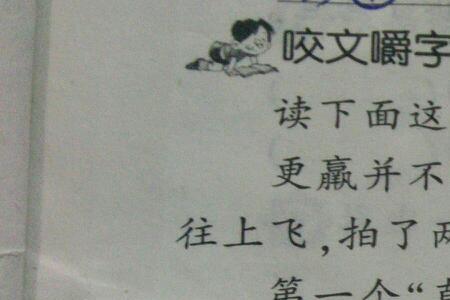 咬文嚼字
读下面这
更羸并不
往上飞,拍了两
第一个“直